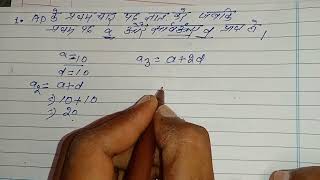 1. AP के प्रथम चार पद ज्ञात करें जबकि
प्रथम पद a और सार्वअंतर d
a = 10
d = 10
a₃ = a + 2d
a₂ = a + d
⇒ 10 + 10
⇒ 20